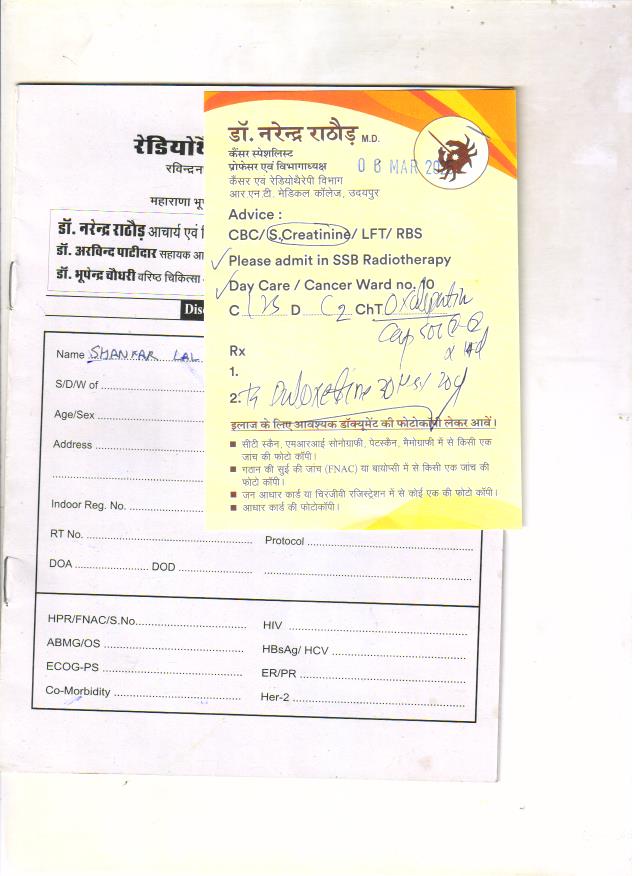 रेडियोथै
रविन्द्रन
महाराणा भू
डॉ. नरेन्द्र राठौड़ आचार्य एवं वि
डॉ. अरविन्द पाटीदार सहायक आ
डॉ. भूपेन्द्र चौधरी वरिष्ठ चिकित्सा
Disc
Name SHANKAR LAL
S/D/W of
Age/Sex
Address
Indoor Reg. No.
RT No.
Protocol
DOA DOD
HPR/FNAC/S.No.
HIV
ABMG/OS
HBsAg/ HCV
ECOG-PS
ER/PR
Co-Morbidity
Her-2
डॉ. नरेन्द्र राठौड़ M.D.
कैंसर स्पेशलिस्ट
प्रोफेसर एवं विभागाध्यक्ष
06 MAR 20
कैंसर एवं रेडियोथैरेपी विभाग
आर.एन.टी. मेडिकल कॉलेज, उदयपुर
Advice :
CBC/ S.Creatinine/ LFT/ RBS
Please admit in SSB Radiotherapy
Day Care / Cancer Ward no. 10
C D C2 ChT Oxaliplatin
Cap 500
Rx
1.
2. Duloxetine 20
इलाज के लिए आवश्यक डॉक्यूमेंट की फोटोकॉपी लेकर आवें।
■ सीटी स्कैन, एमआरआई सोनोग्राफी, पेटस्कैन, मैमोग्राफी में से किसी एक
जांच की फोटो कॉपी।
■ गठान की सुई की जांच (FNAC) या बायोप्सी में से किसी एक जांच की
फोटो कॉपी।
■ जन आधार कार्ड या चिरंजीवी रजिस्ट्रेशन में से कोई एक की फोटो कॉपी।
■ आधार कार्ड की फोटोकॉपी।